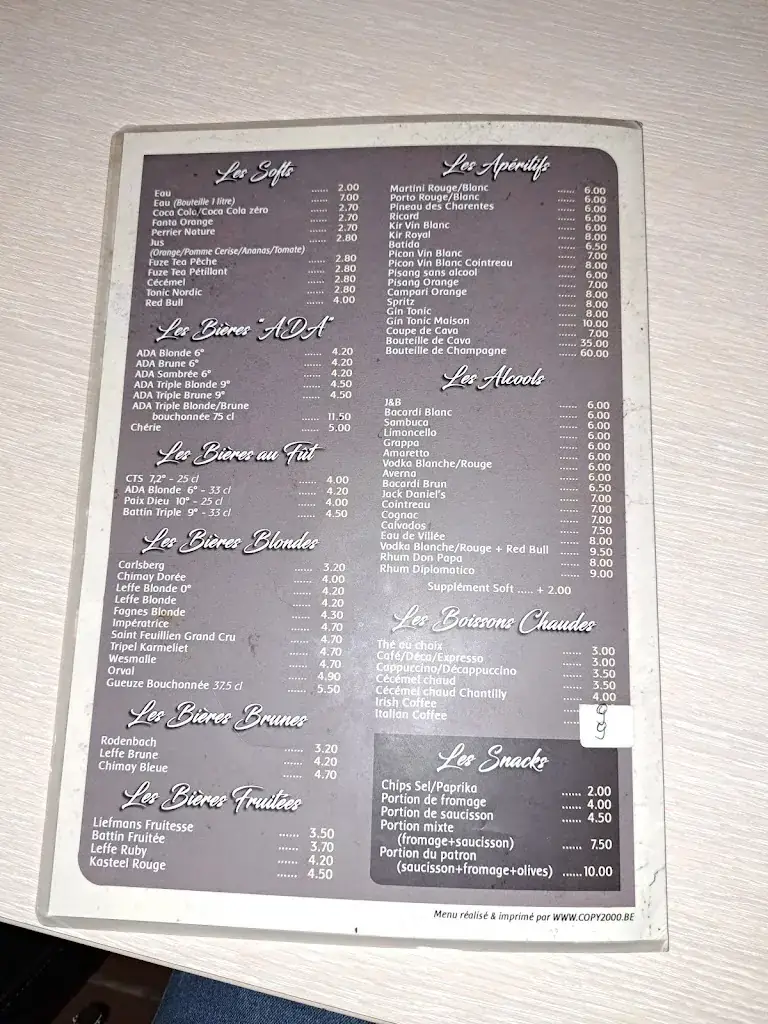 Les Softs
Eau ...... 2.00
Eau (Bouteille 1 litre) ...... 7.00
Coca Cola/Coca Cola zéro ...... 2.70
Fanta Orange ...... 2.70
Perrier Nature ...... 2.70
Jus ...... 2.80
(Orange/Pomme Cerise/Ananas/Tomate)
Fuze Tea Pêche ...... 2.80
Fuze Tea Pétillant ...... 2.80
Cécémel ...... 2.80
Tonic Nordic ...... 2.80
Red Bull ...... 4.00
Les Bières "ADA"
ADA Blonde 6° ...... 4.20
ADA Brune 6° ...... 4.20
ADA Sambrée 6° ...... 4.20
ADA Triple Blonde 9° ...... 4.50
ADA Triple Brune 9° ...... 4.50
ADA Triple Blonde/Brune
bouchonnée 75 cl ...... 11.50
Chérie ...... 5.00
Les Bières au Fût
CTS 7,2° - 25 cl ...... 4.00
ADA Blonde 6° - 33 cl ...... 4.20
Paix Dieu 10° - 25 cl ...... 4.00
Battin Triple 9° - 33 cl ...... 4.50
Les Bières Blondes
Carlsberg ...... 3.20
Chimay Dorée ...... 4.00
Leffe Blonde 0° ...... 4.20
Leffe Blonde ...... 4.20
Fagnes Blonde ...... 4.30
Impératrice ...... 4.70
Saint Feuillien Grand Cru ...... 4.70
Tripel Karmeliet ...... 4.70
Wesmalle ...... 4.70
Orval ...... 4.90
Gueuze Bouchonnée 37.5 cl ...... 5.50
Les Bières Brunes
Rodenbach ...... 3.20
Leffe Brune ...... 4.20
Chimay Bleue ...... 4.70
Les Bières Fruitées
Liefmans Fruitesse ...... 3.50
Battin Fruitée ...... 3.70
Leffe Ruby ...... 4.20
Kasteel Rouge ...... 4.50
Les Apéritifs
Martini Rouge/Blanc ...... 6.00
Porto Rouge/Blanc ...... 6.00
Pineau des Charentes ...... 6.00
Ricard ...... 6.00
Kir Vin Blanc ...... 6.00
Kir Royal ...... 8.00
Batida ...... 6.50
Picon Vin Blanc ...... 7.00
Picon Vin Blanc Cointreau ...... 8.00
Pisang sans alcool ...... 6.00
Pisang Orange ...... 7.00
Campari Orange ...... 8.00
Spritz ...... 8.00
Gin Tonic ...... 8.00
Gin Tonic Maison ...... 10.00
Coupe de Cava ...... 7.00
Bouteille de Cava ...... 35.00
Bouteille de Champagne ...... 60.00
Les Alcools
J&B ...... 6.00
Bacardi Blanc ...... 6.00
Sambuca ...... 6.00
Limoncello ...... 6.00
Grappa ...... 6.00
Amaretto ...... 6.00
Vodka Blanche/Rouge ...... 6.00
Averna ...... 6.00
Bacardi Brun ...... 6.50
Jack Daniel's ...... 7.00
Cointreau ...... 7.00
Cognac ...... 7.00
Calvados ...... 7.50
Eau de Villée ...... 8.00
Vodka Blanche/Rouge + Red Bull ...... 9.50
Rhum Don Papa ...... 8.00
Rhum Diplomatico ...... 9.00
Supplément Soft ..... + 2.00
Les Boissons Chaudes
Thé au choix ...... 3.00
Café/Déca/Expresso ...... 3.00
Cappuccino/Décappuccino ...... 3.50
Cécémel chaud ...... 3.50
Cécémel chaud Chantilly ...... 4.00
Irish Coffee ......
Italian Coffee ......
Les Snacks
Chips Sel/Paprika ...... 2.00
Portion de fromage ...... 4.00
Portion de saucisson ...... 4.50
Portion mixte
(fromage+saucisson) ...... 7.50
Portion du patron
(saucisson+fromage+olives) ......10.00
Menu réalisé & imprimé par WWW.COPY2000.BE